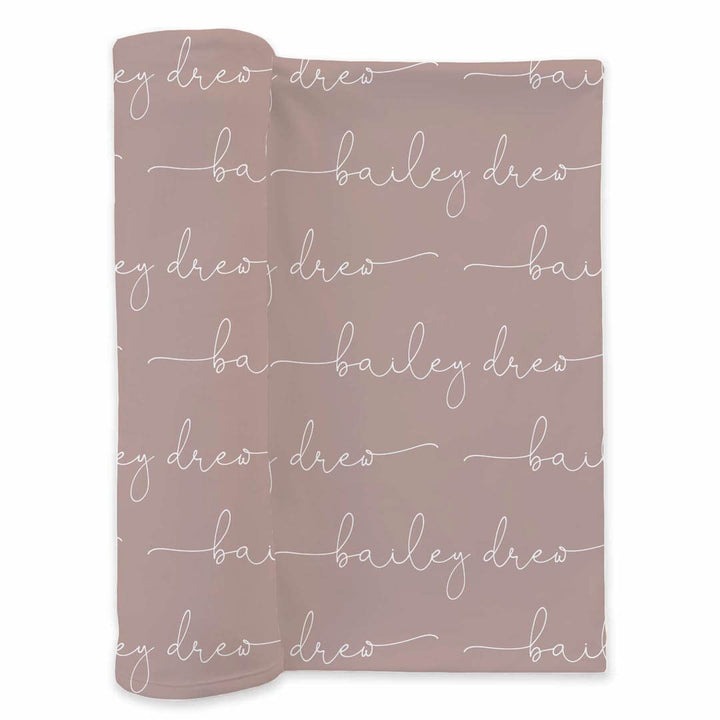 ey drew drew bai
ba bailey drew
ey drew drew bai
ba bailey drew
ey drew drew bai
bai bailey drew
ey drew drew bail